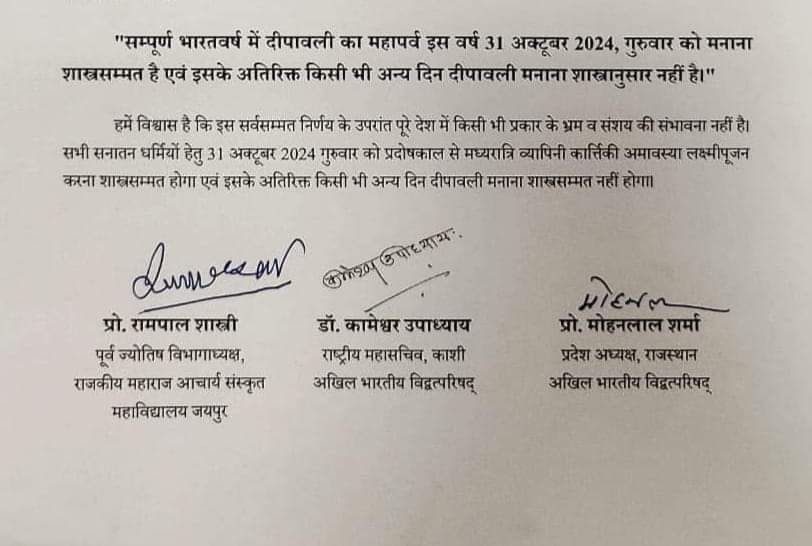 "सम्पूर्ण भारतवर्ष में दीपावली का महापर्व इस वर्ष 31 अक्टूबर 2024, गुरुवार को मनाना
शास्त्रसम्मत है एवं इसके अतिरिक्त किसी भी अन्य दिन दीपावली मनाना शास्त्रानुसार नहीं है।"
हमें विश्वास है कि इस सर्वसम्मत निर्णय के उपरांत पूरे देश में किसी भी प्रकार के भ्रम व संशय की संभावना नहीं है।
सभी सनातन धर्मियों हेतु 31 अक्टूबर 2024 गुरुवार को प्रदोषकाल से मध्यरात्रि व्यापिनी कार्त्तिकी अमावस्या लक्ष्मीपूजन
करना शास्त्रसम्मत होगा एवं इसके अतिरिक्त किसी भी अन्य दिन दीपावली मनाना शास्त्रसम्मत नहीं होगा।
कामेश्वर उपाध्यायः
मोहनलाल
प्रो. रामपाल शास्त्री
पूर्व ज्योतिष विभागाध्यक्ष,
राजकीय महाराज आचार्य संस्कृत
महाविद्यालय जयपुर
डॉ. कामेश्वर उपाध्याय
राष्ट्रीय महासचिव, काशी
अखिल भारतीय विद्वत्परिषद्
प्रो. मोहनलाल शर्मा
प्रदेश अध्यक्ष, राजस्थान
अखिल भारतीय विद्वत्परिषद्